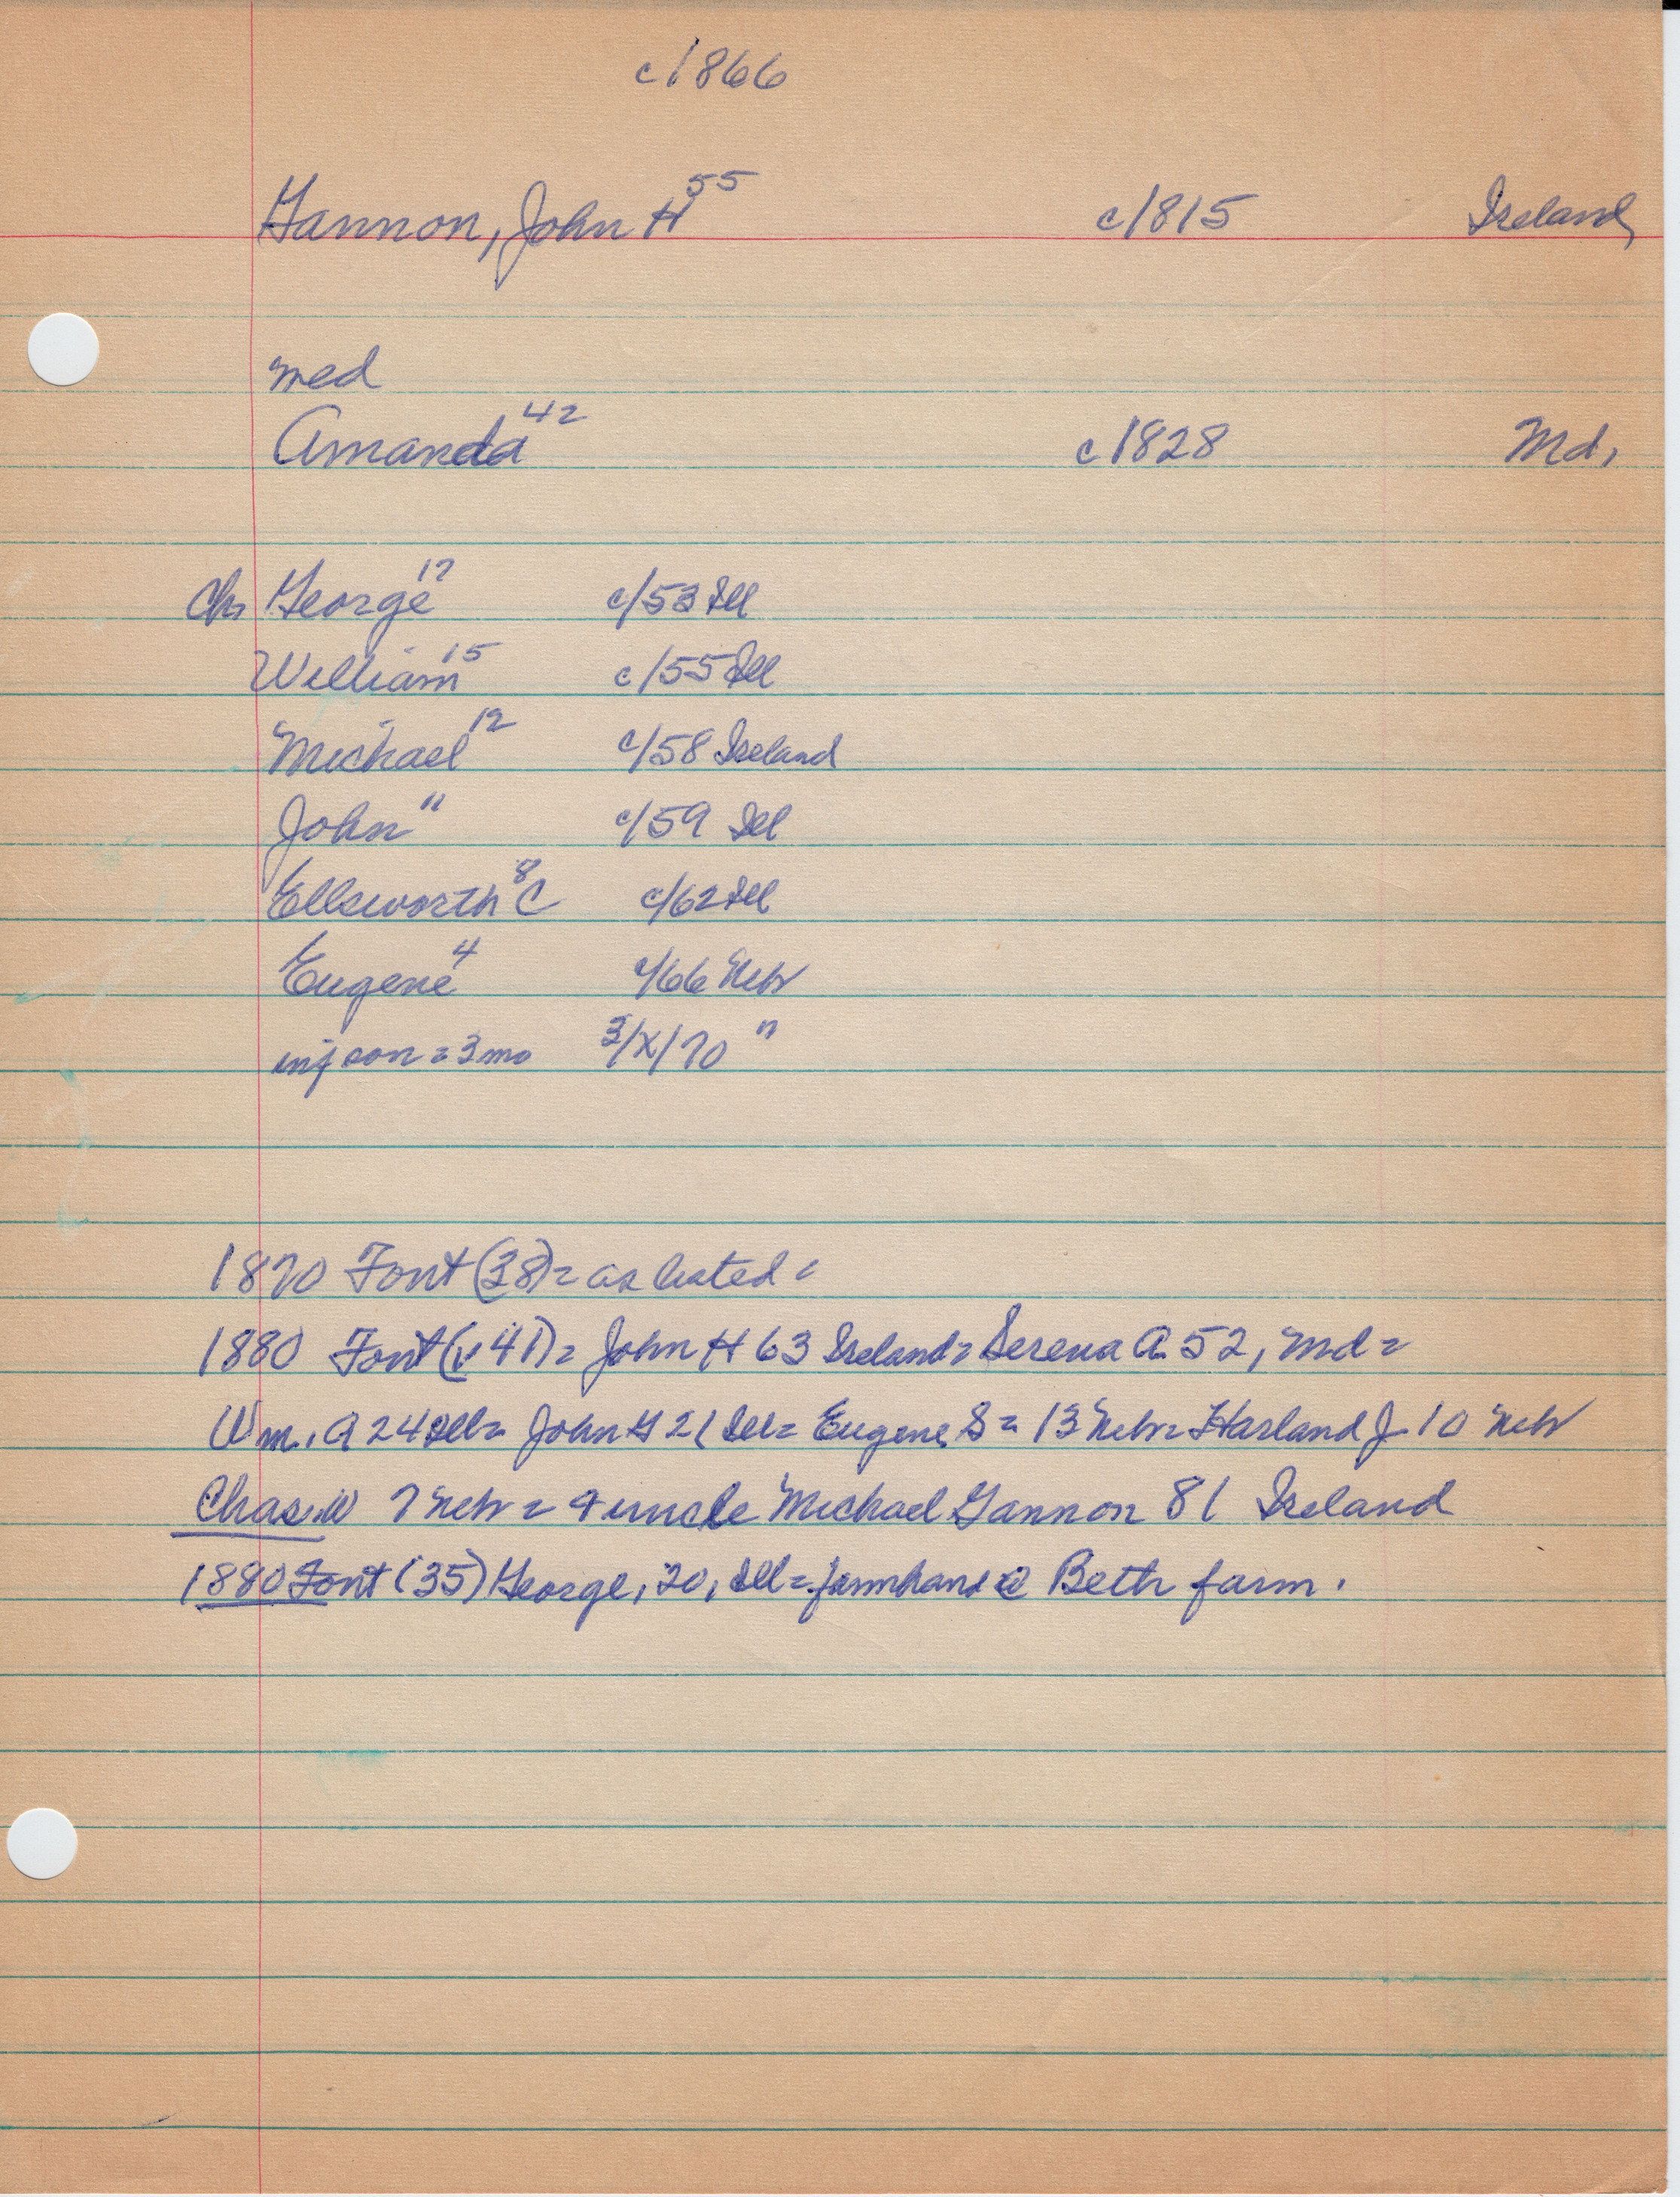 c1866
Gannon, John H 55 c1815 Ireland
med
Amanda 42 c1828 Md.
Ch, George 17 c/53 Ill
William 15 c/55 Ill
Michael 12 c/58 Ireland
John 11 c/59 Ill
Ellsworth C 8 c/62 Ill
Eugene 4 c/66 Nebr
inf son = 3 mo 3/X/70 "
1870 Font (38) = as listed =
1880 Font (v 41) = John H 63 Ireland = Serena A 52, Md =
Wm. A 24 Ill = John G 21 Ill = Eugene S = 13 Nebr = Harland J 10 Nebr
Chas. W 7 Nebr = + uncle Michael Gannon 81 Ireland
1880 Font (35) George, 20, Ill = farmhand @ Beth farm.